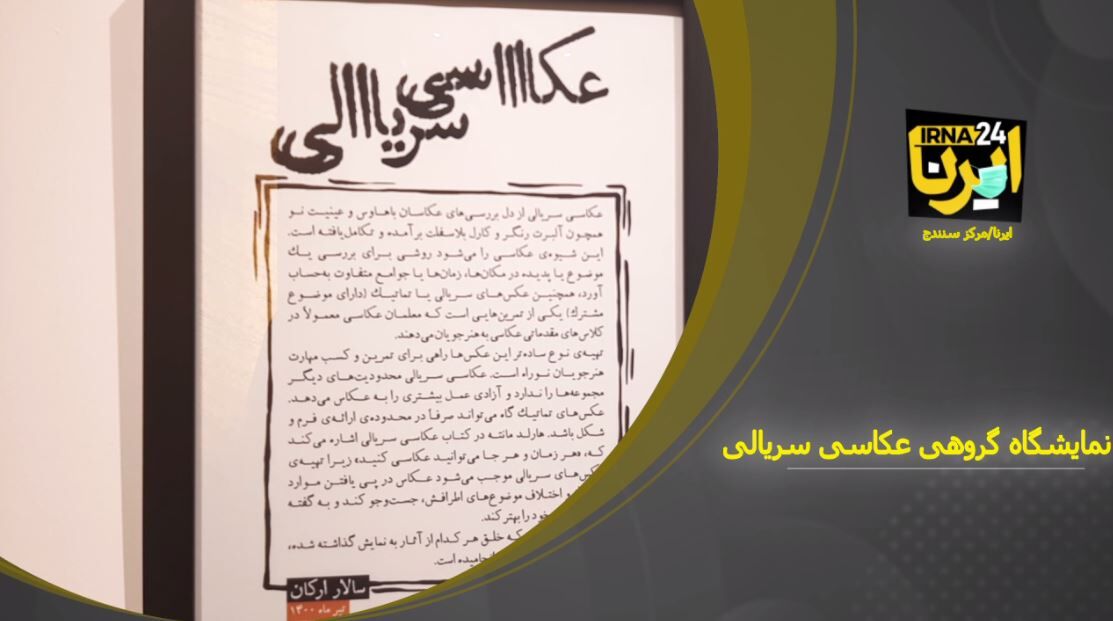 عکاسی
سریالی
عکاسی سریالی از دل بررسی‌های عکاسان باهاوس و عینیت نو
همچون آلبرت رنگر و کارل بلاسفلت برآمده و تکامل‌یافته است.
این شیوه‌ی عکاسی را می‌شود روشی برای بررسی یک
موضوع یا پدیده در مکان‌ها، زمان‌ها یا جوامع متفاوت به‌حساب
آورد، همچنین عکس‌های سریالی یا تماتیک (دارای موضوع
مشترک) یکی از تمرین‌هایی است که معلمان عکاسی معمولاً در
کلاس‌های مقدماتی عکاسی به هنرجویان می‌دهند.
تهیه‌ی نوع ساده‌تر این عکس‌ها راهی برای تمرین و کسب مهارت
هنرجویان نوراه است. عکاسی سریالی محدودیت‌های دیگر
مجموعه‌ها را ندارد و آزادی عمل بیشتری را به عکاس می‌دهد.
عکس‌های تماتیک گاه می‌تواند صرفاً در محدوده‌ی ارائه‌ی فرم و
شکل باشد. هارلد مانته در کتاب عکاسی سریالی اشاره می‌کند
که، «هر زمان و هر جا می‌توانید عکاسی کنید» زیرا تهیه‌ی
عکس‌های سریالی موجب می‌شود عکاس در پی یافتن موارد
و اختلاف موضوع‌های اطرافش، جست‌وجو کند و به گفته
خود را بهتر کند.
که خلق هر کدام از آثار به نمایش گذاشته شده،
انجامیده است.
سالار ارکان
تیر ماه ۱۴۰۰
IRNA 24
ایرنا
ایرنا/مرکز سنندج
نمایشگاه گروهی عکاسی سریالی